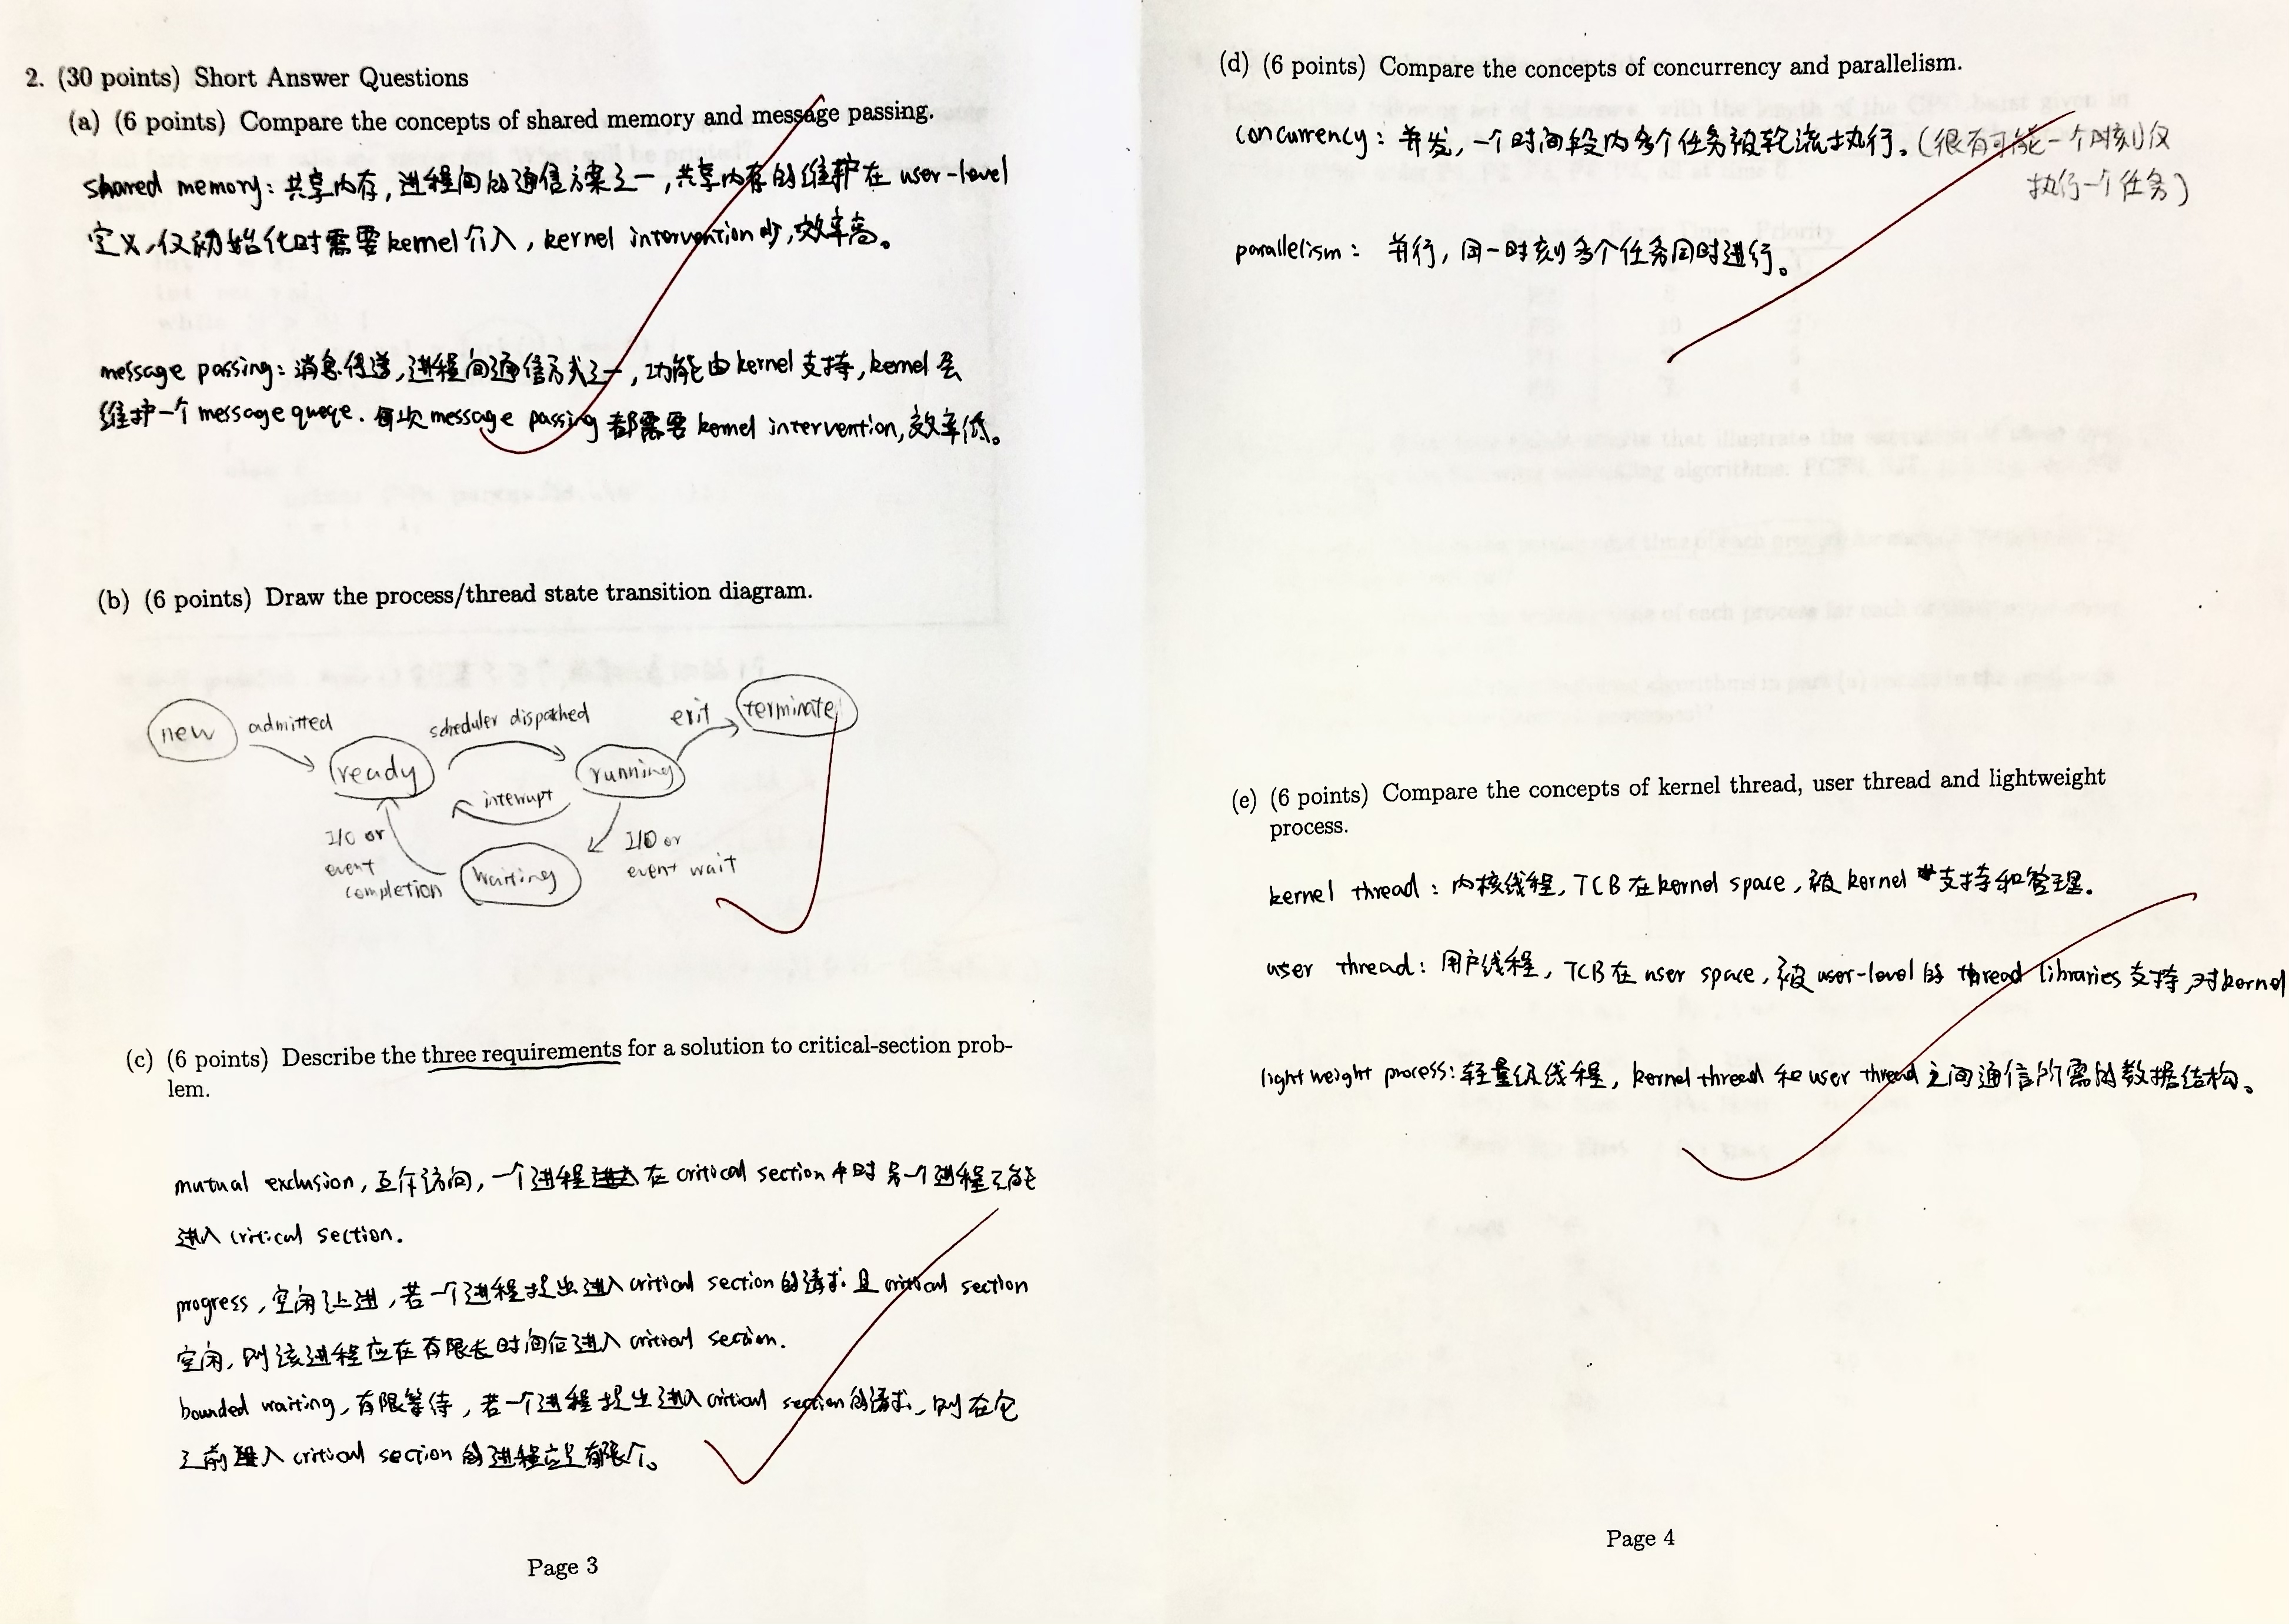 2. (30 points) Short Answer Questions
(a) (6 points) Compare the concepts of shared memory and message passing.
shared memory: 共享内存, 进程间的通信方案之一, 共享内存的维护在 user-level
定义, 仅初始化时需要 kernel 介入, kernel intervention 少, 效率高。
message passing: 消息传递, 进程间通信方式之一, 功能由 kernel 支持, kernel 会
维护一个 message queqe. 每次 message passing 都需要 kernel intervention, 效率低。
(b) (6 points) Draw the process/thread state transition diagram.
new
admitted
ready
scheduler dispatched
interrupt
running
exit
terminate
I/O or
event
completion
waiting
I/O or
event wait
(c) (6 points) Describe the three requirements for a solution to critical-section prob-
lem.
mutual exclusion, 互斥访问, 一个进程在 critical section 中时另一个进程不能
进入 critical section.
progress, 空闲让进, 若一个进程提出进入 critical section 的请求且 critical section
空闲, 则该进程应在有限长时间后进入 critical section.
bounded waiting, 有限等待, 若一个进程提出进入 critical section 的请求, 则在它
之前进入 critical section 的进程应是有限个。
Page 3
(d) (6 points) Compare the concepts of concurrency and parallelism.
concurrency: 并发, 一个时间段内多个任务被轮流执行。(很有可能一个时刻仅
执行一个任务)
parallelism: 并行, 同一时刻多个任务同时进行。
(e) (6 points) Compare the concepts of kernel thread, user thread and lightweight
process.
kernel thread: 内核线程, TCB 在 kernel space, 被 kernel 支持和管理.
user thread: 用户线程, TCB 在 user space, 被 user-level 的 thread libraries 支持, 对 kernel
lightweight process: 轻量级线程, kernel thread 和 user thread 之间通信所需的数据结构。
Page 4